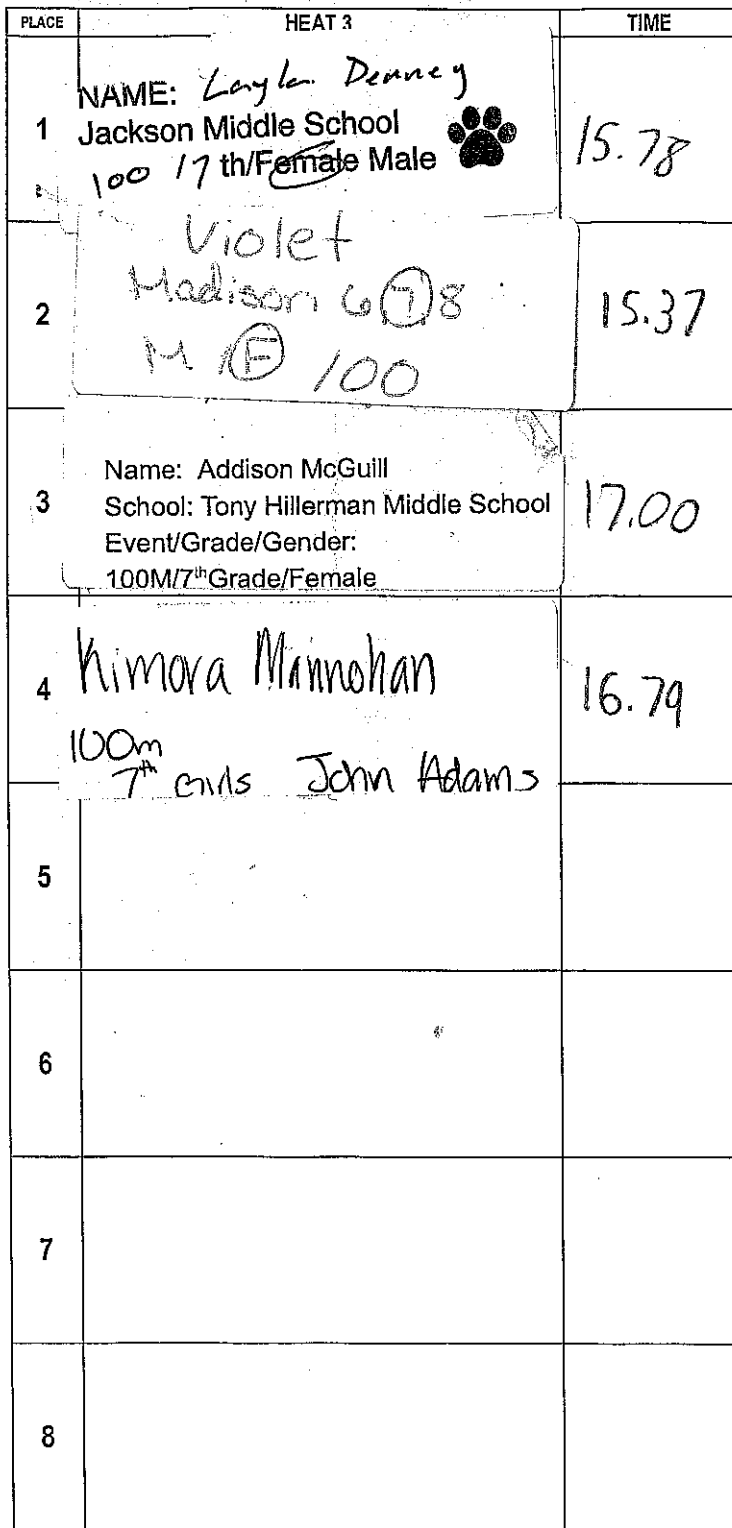 PLACE HEAT 3 TIME
1 NAME: Layla Denney 15.78
Jackson Middle School
100 / 7 th/Female Male
2 Violet 15.37
Madison 6 7 8
M / F 100
3 Name: Addison McGuill 17.00
School: Tony Hillerman Middle School
Event/Grade/Gender:
100M/7thGrade/Female
4 Kimora Minnohan 16.79
100m
7th Girls John Adams
5
6
7
8